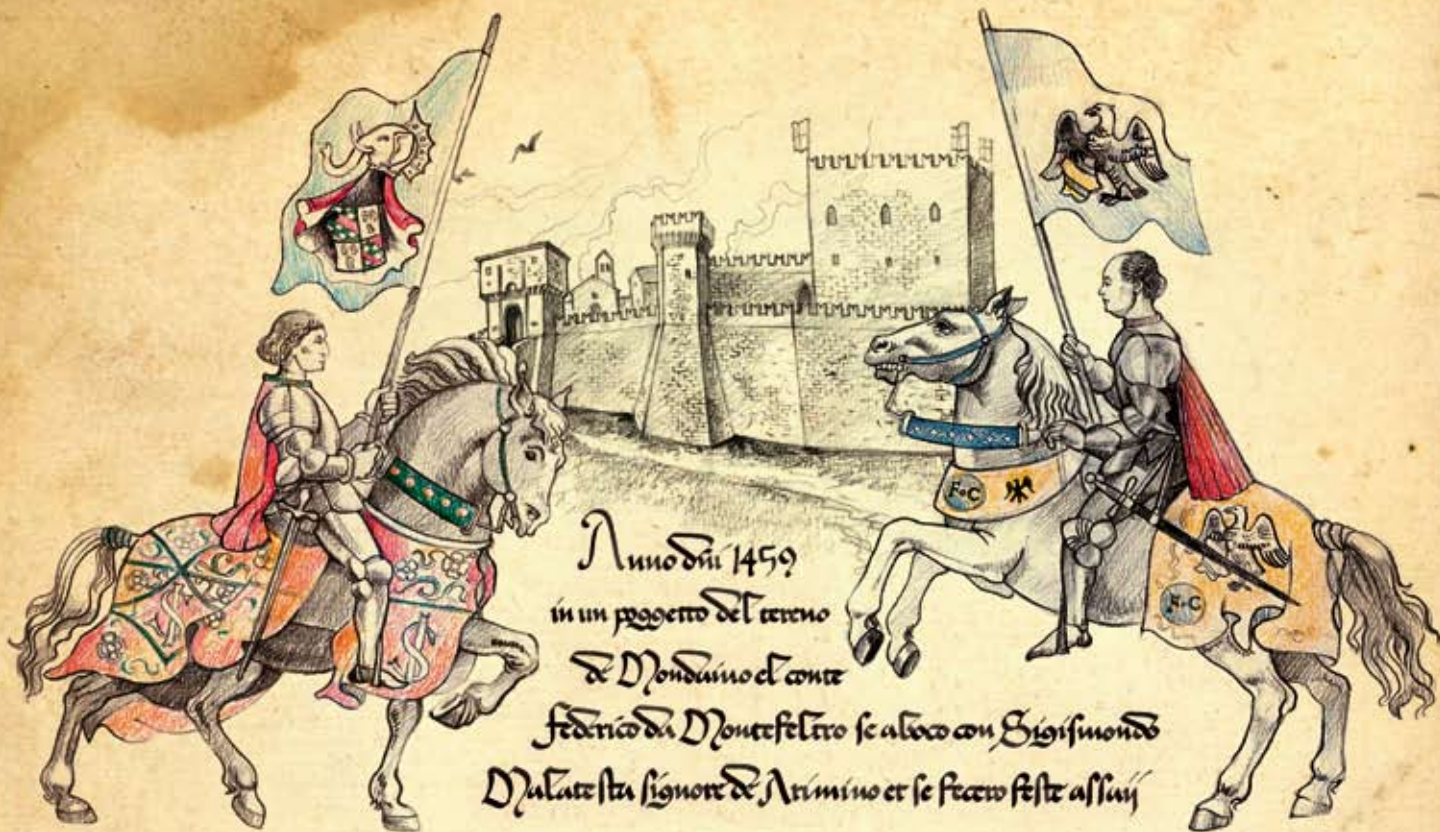 Anno dni 1459
in un poggetto del tereno
de Mondaino el conte
federico da Montefeltro se aboco con Sigismondo
Malatesta signore de Arimino et se fecero feste assaij
F•C
F•C